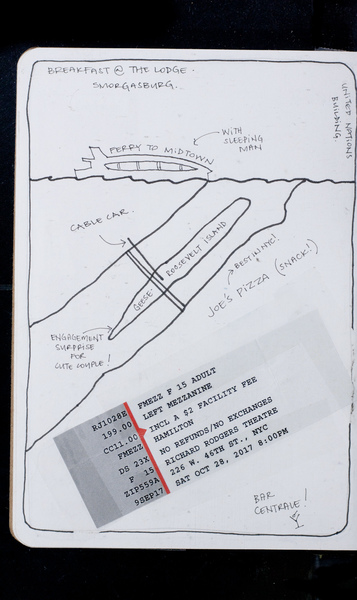 BREAKFAST @ THE LODGE.
SMORGASBURG.
UNITED NATIONS
BUILDING.
FERRY TO MIDTOWN
WITH
SLEEPING
MAN
CABLE CAR.
ROOSEVELT ISLAND
GEESE
BEST IN NYC!
JOE'S PIZZA (SNACK!)
ENGAGEMENT
SURPRISE
FOR
CUTE COUPLE!
RJ1028E FMEZZ F 15 ADULT
199.00 LEFT MEZZANINE
CC11.00 INCL A $2 FACILITY FEE
FMEZZ HAMILTON
DS 23X NO REFUNDS/NO EXCHANGES
F 15 RICHARD RODGERS THEATRE
ZIP559A 226 W. 46TH ST., NYC
9SEP17 SAT OCT 28, 2017 8:00PM
BAR
CENTRALE!